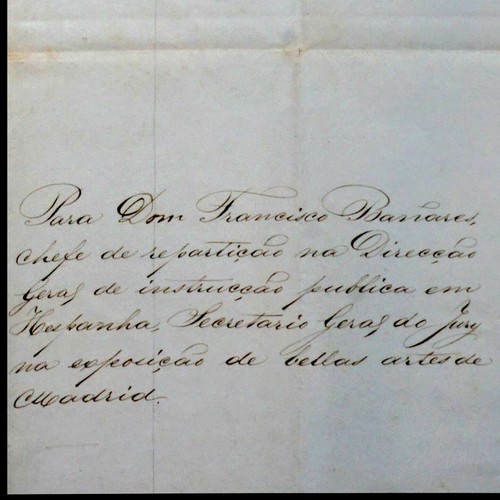 Para Dom Francisco Bañares,
chefe de repartição na Direcção
Geral de instrucção publica em
Hespanha, Secretario Geral do Jury
na exposição de bellas artes de
Madrid.